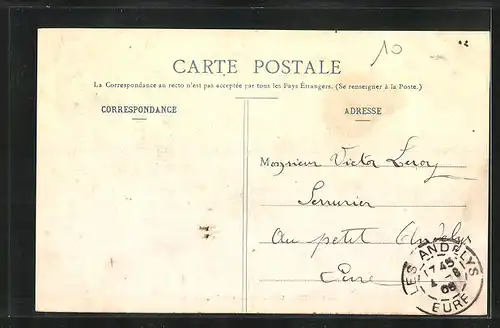 10
CARTE POSTALE
La Correspondance au recto n'est pas acceptée par tous les Pays Étrangers. (Se renseigner à la Poste.)
CORRESPONDANCE
ADRESSE
Monsieur Victor Leroy
Serrurier
au petit Andelys
Eure
LES ANDELYS
17 45
4 -8
08
EURE